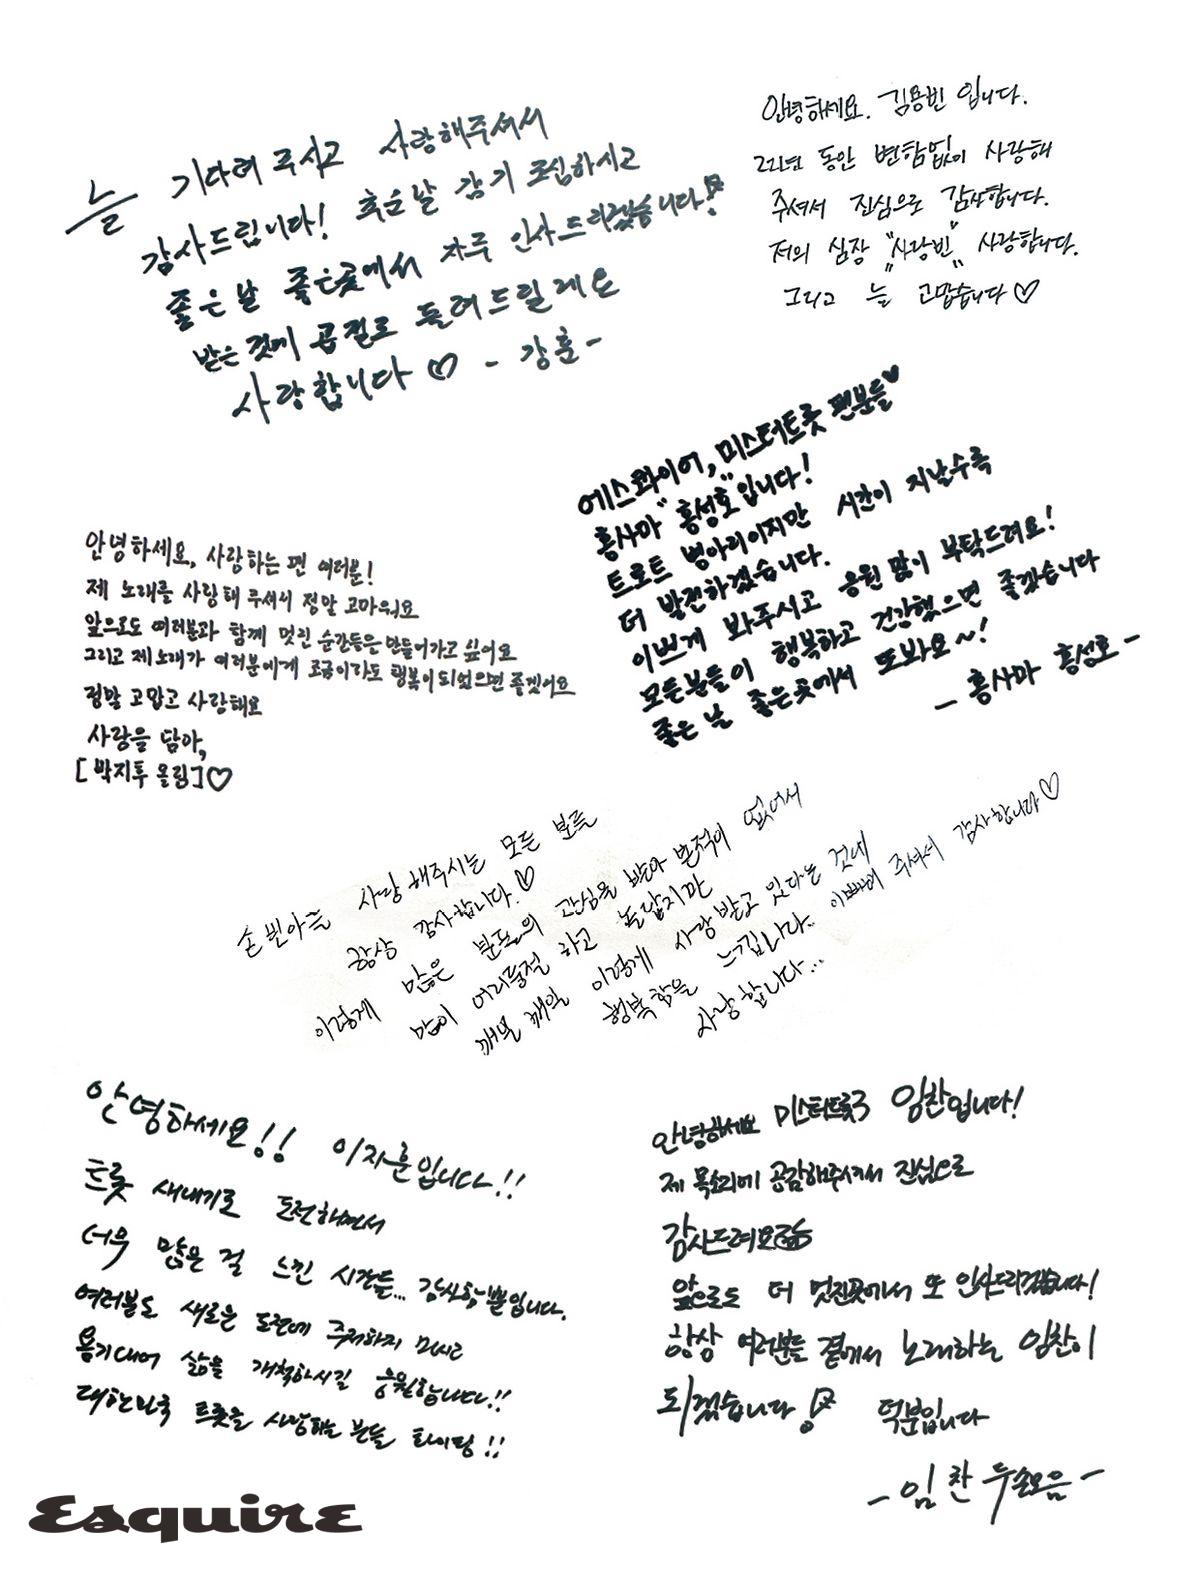 늘 기다려 주시고 사랑해주셔서
감사드립니다! 추운날 감기 조심하시고
좋은 날 좋은곳에서 자주 인사드리겠습니다!
받은 것에 곱절로 돌려드릴게요
사랑합니다♡ - 강훈 -
안녕하세요. 김용빈 입니다.
22년 동안 변함없이 사랑해
주셔서 진심으로 감사합니다.
저의 심장 "사랑빈" 사랑합니다.
그리고 늘 고맙습니다♡
에스콰이어, 미스터트롯 팬분들♥
홍사마 "홍성호"입니다!
트로트 병아리이지만 시간이 지날수록
더 발전하겠습니다.
이쁘게 봐주시고 응원 많이 부탁드려요!
모든분들이 행복하고 건강했으면 좋겠습니다
좋은 날 좋은곳에서 또봐요~!
- 홍사마 홍성호 -
안녕하세요, 사랑하는 팬 여러분!
제 노래를 사랑해 주셔서 정말 고마워요
앞으로도 여러분과 함께 멋진 순간들은 만들어가고 싶어요
그리고 제 노래가 여러분에게 조금이라도 행복이 되었으면 좋겠어요
정말 고맙고 사랑해요
사랑을 담아,
[박지투 올림]♡
손빈아를 사랑해주시는 모든 분들
항상 감사합니다.♡
이렇게 많은 분들의 관심을 받아 본적이 없어서
많이 어리둥절 하고 놀랍지만
매일 매일 이렇게 사랑받고 있다는 것에
행복함을 느낍니다.. 이뻐해 주셔서 감사합니다♡
사랑합니다...
안녕하세요!! 이지훈입니다!!
트롯 새내기로 도전하면서
너무 많은 걸 느낀 시간들... 감사할 뿐입니다.
여러분도 새로운 도전에 주저하지 마시고
용기내어 삶을 개척하시길 응원합니다!!
대한민국 트롯을 사랑하는 분들 화이팅!!
안녕하세요 미스터트롯3 임찬입니다!
제 목소리에 공감해주셔서 진심으로
감사드려요
앞으로도 더 멋진곳에서 또 인사드리겠습니다!
항상 여러분들 곁에서 노래하는 임찬이
되겠습니다! 덕분입니다
- 임찬 두손모음 -
Esquire